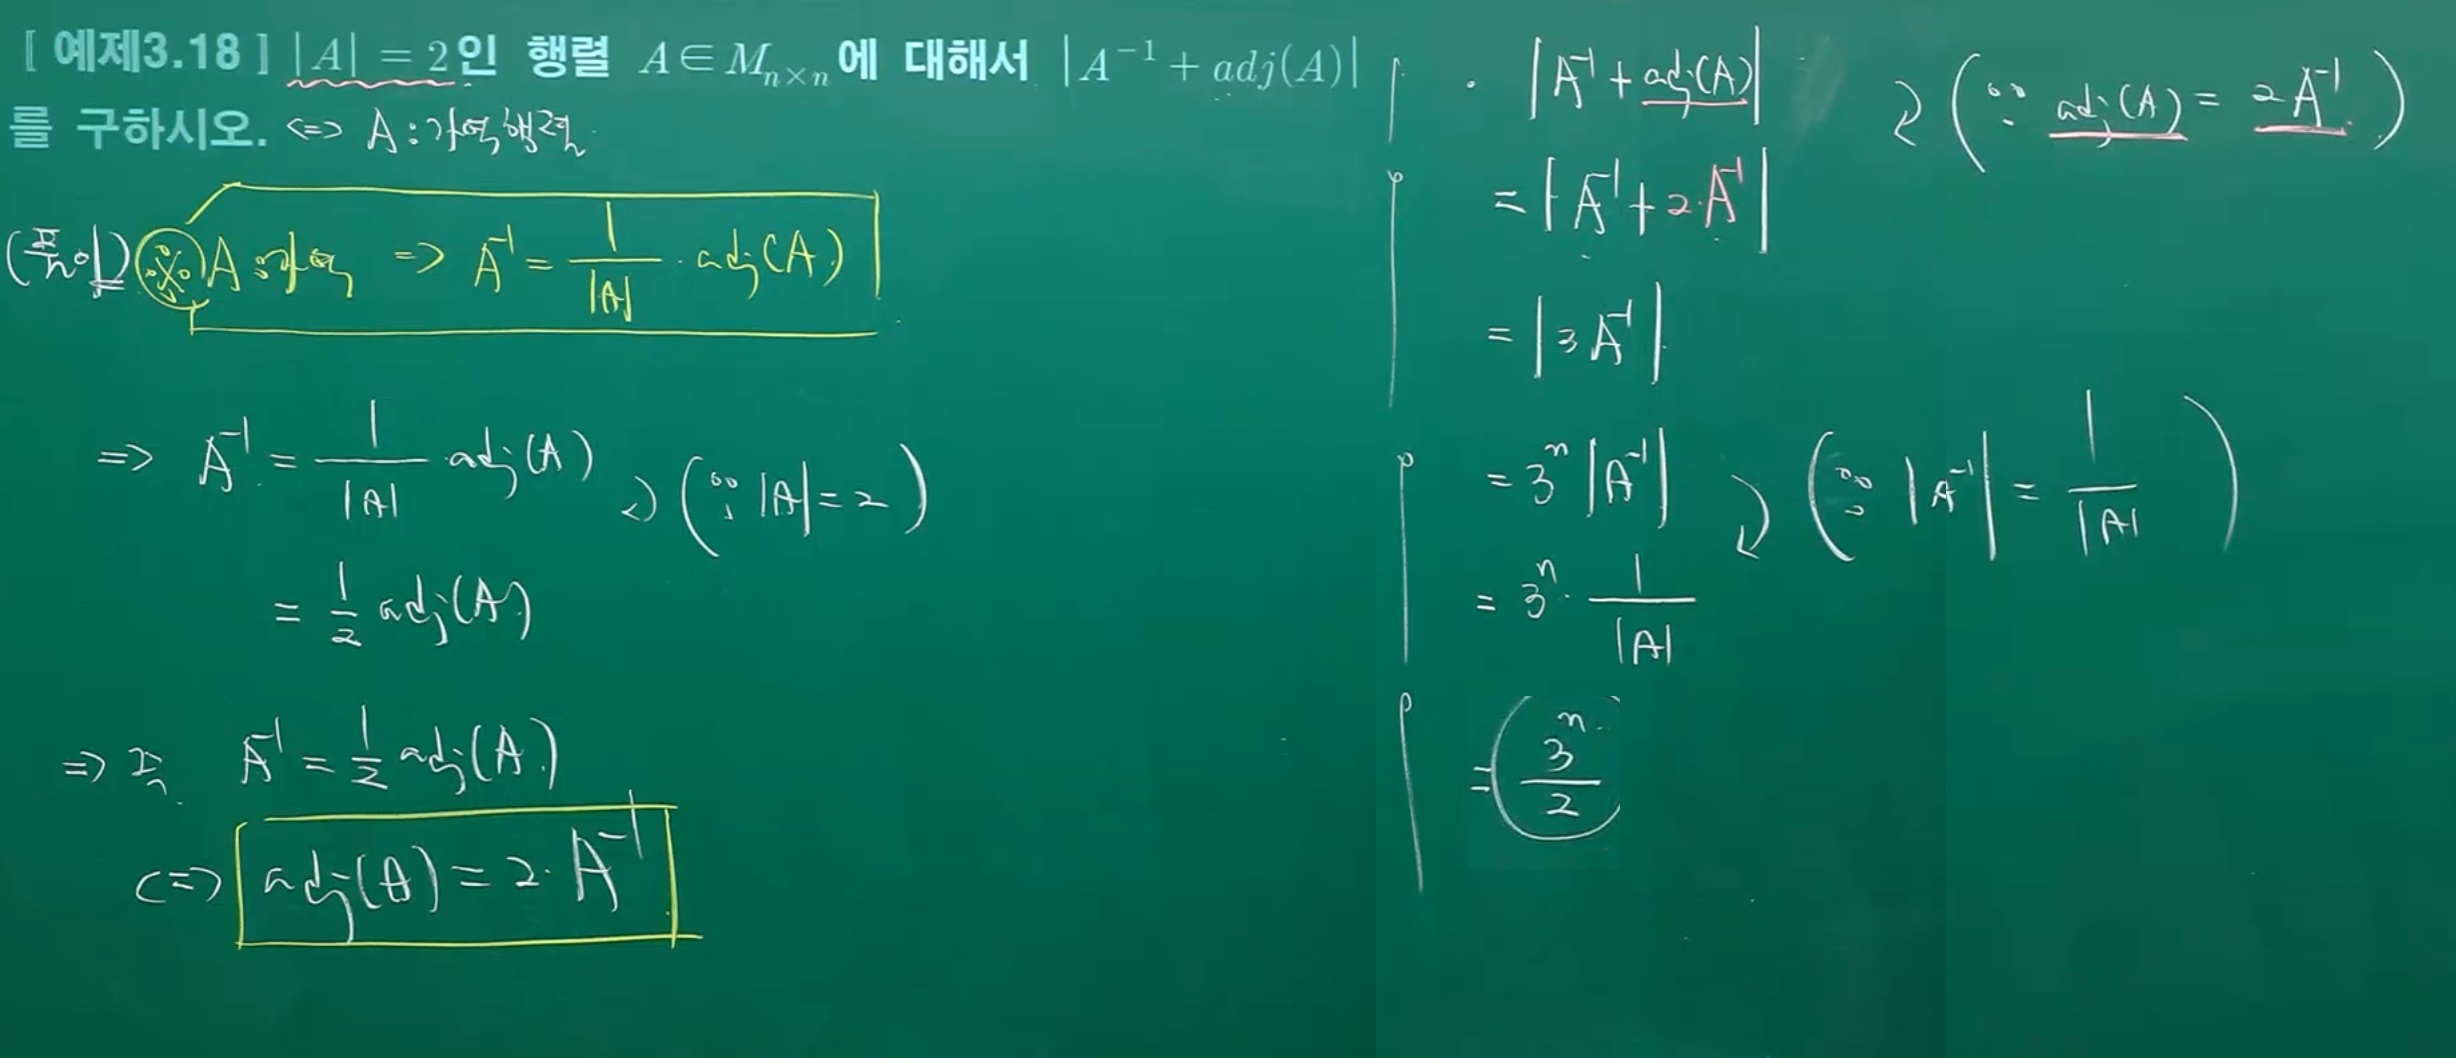 [ 예제3.18 ] |A| = 2인 행렬 A∈M_{n×n}에 대해서 |A^{-1} + adj(A)|
를 구하시오. <=> A : 가역행렬.
(풀이) ※ A : 가역 => A^{-1} = \frac{1}{|A|} · adj(A)
=> A^{-1} = \frac{1}{|A|} · adj(A) (∵ |A| = 2)
= \frac{1}{2} adj(A)
=> 즉 A^{-1} = \frac{1}{2} adj(A)
<=> adj(A) = 2 · A^{-1}
· |A^{-1} + adj(A)| (∵ adj(A) = 2A^{-1})
= |A^{-1} + 2·A^{-1}|
= |3A^{-1}|
= 3^n |A^{-1}| (∵ |A^{-1}| = \frac{1}{|A|})
= 3^n · \frac{1}{|A|}
= \frac{3^n}{2}